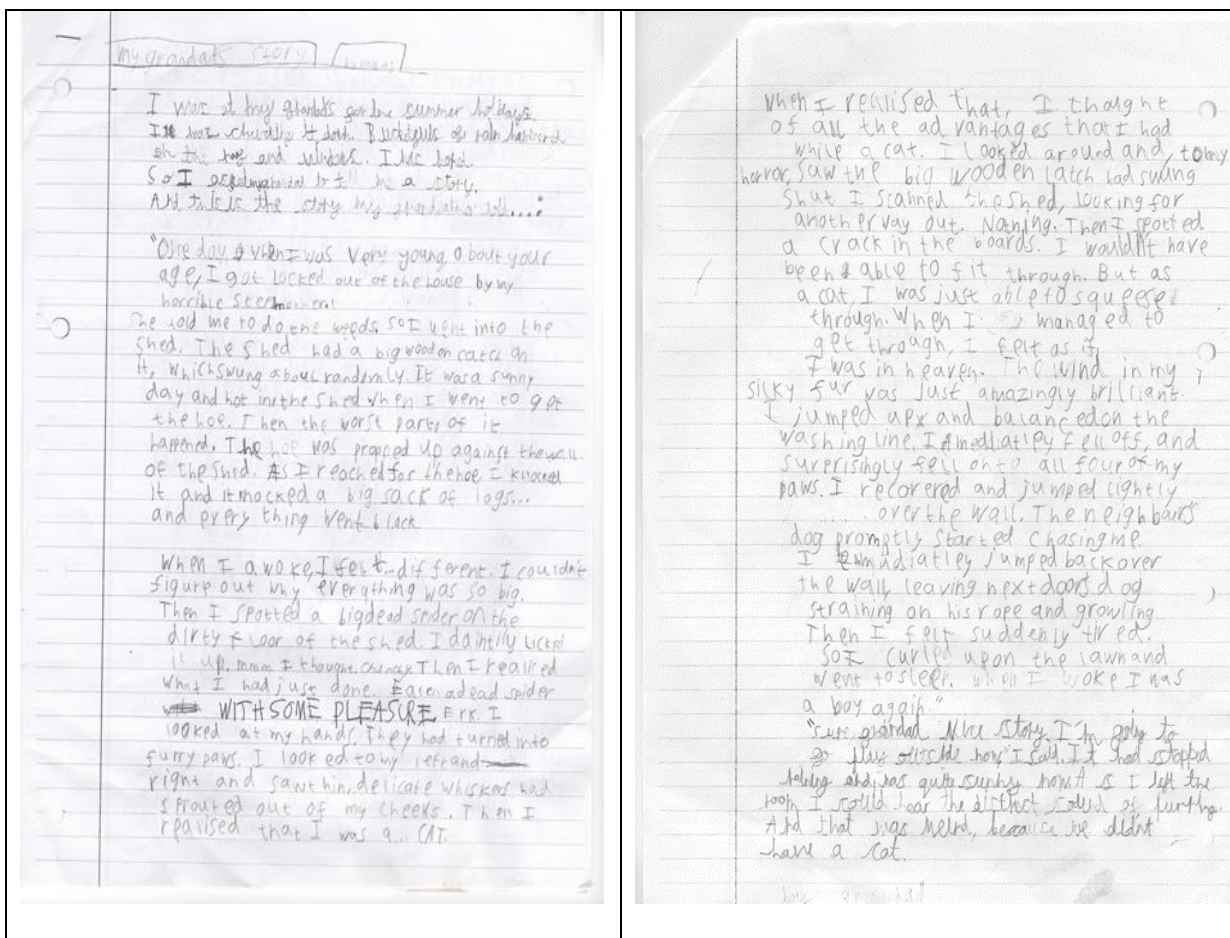 my grandads story
I was at my grandads for the summer holidays.
It was chucking it down. Bucketfuls of rain hammered
on the roof and windows. I was bored.
So I asked my grandad to tell me a story.
And this is the story my grandad told....:
"One day when I was very young, about your
age, I got locked out of the house by my
horrible
She told me to do the weeds, so I went into the
shed. The shed had a big wooden catch on
it, which swung about randomly. It was a sunny
day and hot in the shed when I went to get
the hoe. Then the worst parts of it
happened. The hoe was propped up against the wall
of the shed. As I reached for the hoe, I knocked
it and it knocked a big sack of logs...
and every thing went black
When I awoke, I felt different. I couldn't
figure out why everything was so big.
Then I spotted a big dead spider on the
dirty floor of the shed. I daintily licked
it up. mmm I thought. Crunchy. Then I realised
what I had just done. Eaten a dead spider
WITH SOME PLEASURE Erk. I
looked at my hands. They had turned into
furry paws. I looked to my left and
right and saw thin, delicate whiskers had
sprouted out of my cheeks. Then I
realised that I was a... CAT.
when I realised that, I thought
of all the advantages that I had
while a cat. I looked around and, to my
horror, saw the big wooden latch had swung
shut I scanned the shed, looking for
another way out. Nothing. Then I spotted
a crack in the boards. I wouldn't have
been able to fit through. But as
a cat, I was just able to squeese
through. When I managed to
get through, I felt as if
I was in heaven. The wind in my
silky fur was just amazingly brilliant.
I jumped up and balanced on the
washing line. I imediatley fell off, and
surprisingly fell onto all four of my
paws. I recovered and jumped lightly
over the wall. The neighbour's
dog promptly started chasing me
I immediatley jumped back over
the wall, leaving next doors dog
straining on his rope and growling
Then I felt suddenly tired.
So I curled up on the lawn and
went to sleep. when I woke I was
a boy again."
"sure grandad. Nice story. I'm going to
go play outside now" I said. It had stopped
raining and was quite sunny now. As I left the
room I could hear the distinct sound of purring
And that was weird, because we didn't
have a cat.